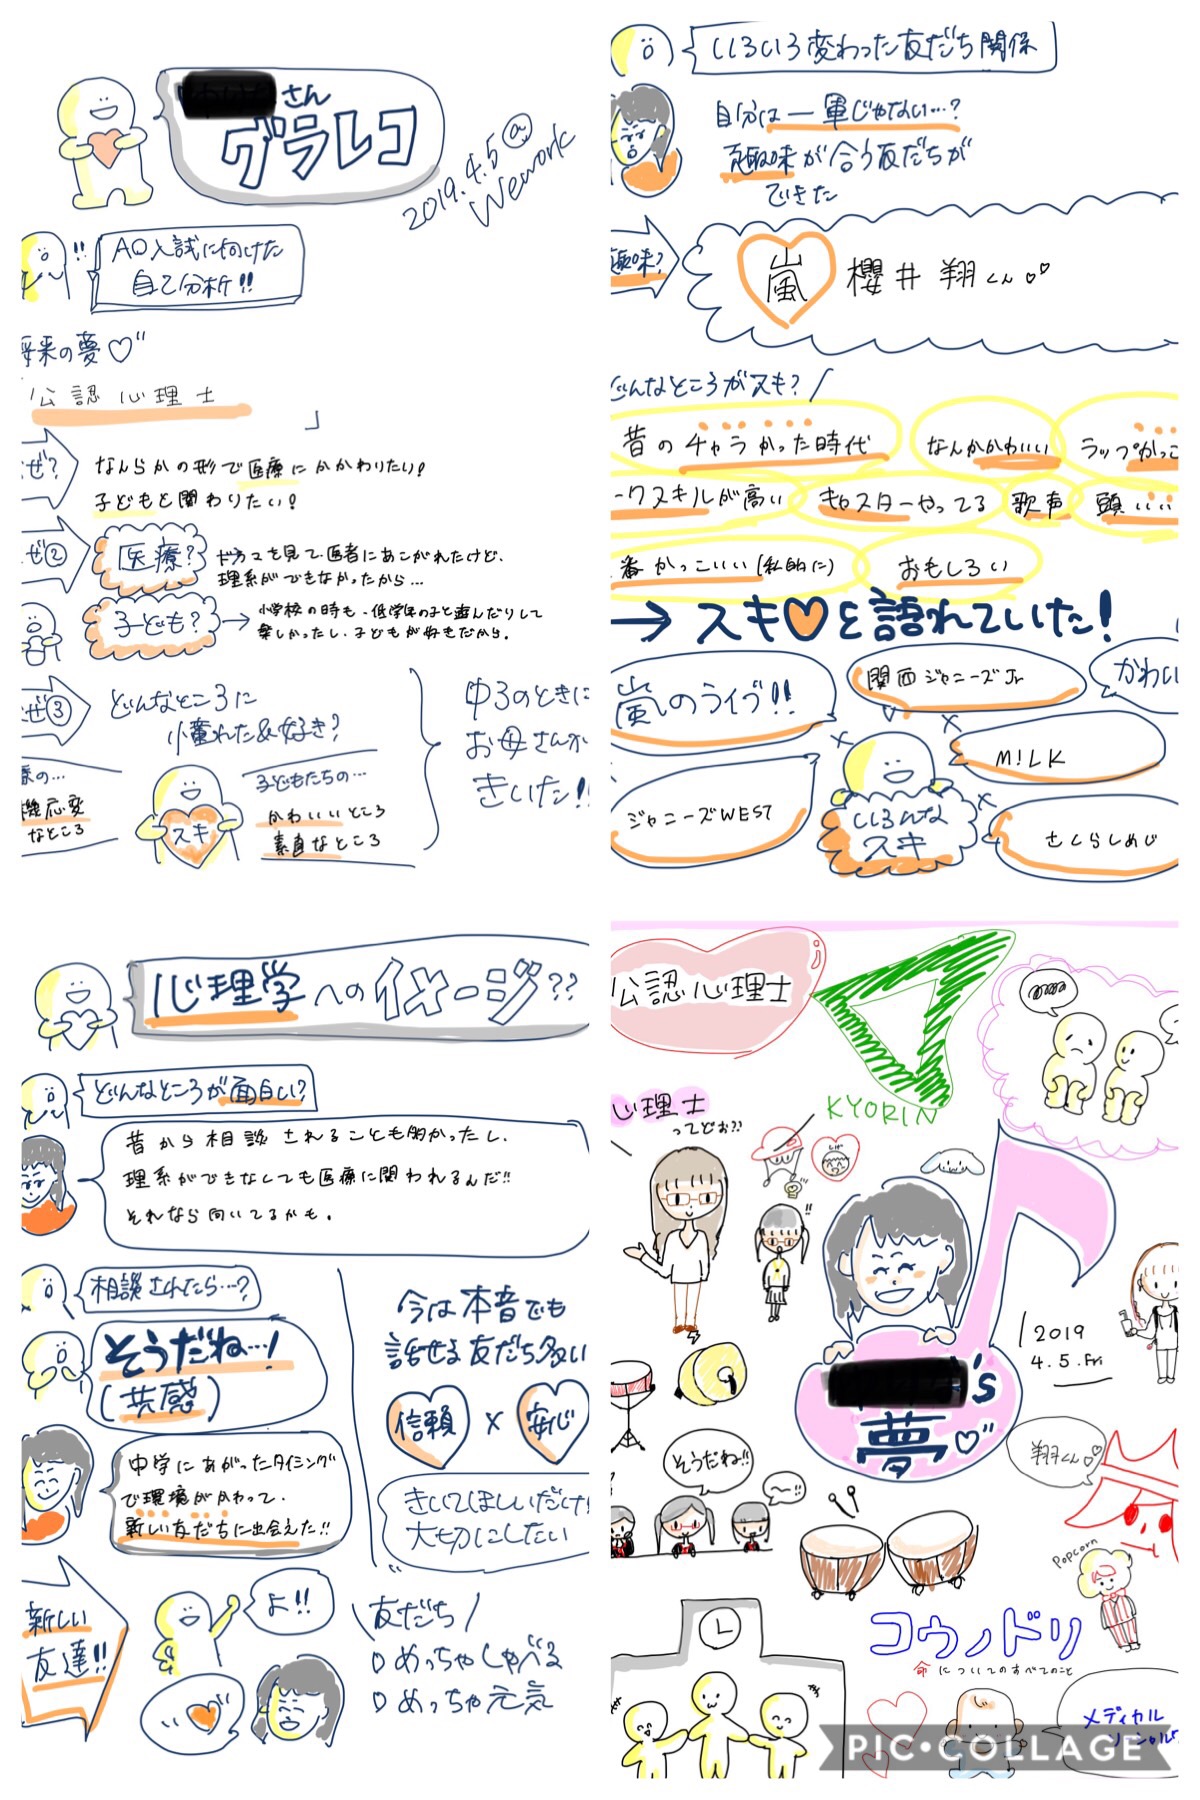 さん
グラレコ
2019.4.5 @
Wework
!!
AO入試に向けた
自己分析!!
来の夢♡"
公認心理士
」
ぜ?
なんらかの形で医療にかかわりたい!
子どもと関わりたい!
ぜ②
医療?
ドラマを見て、医者にあこがれたけど、
理系ができなかったから…
子どもも?
→
小学校の時も、低学年の子と遊んだりして
楽しかったし、子どもが好きだから。
ぜ③
どんなところに
憧れた&好き?
の…
機応変
なところ
スキ
子どもたちの…
かわいいところ
素直なところ
中3のときに
お母さんが
きいた!!
いろいろ変わった友だち関係
自分は一軍じゃない…?
趣味が合う友だちが
できた
趣味?
嵐
櫻井翔くん♡♡
どんなところがスキ?
昔のチャラかった時代
なんかかわいい
ラップかっこ
ークスキルが高い
キャスターやってる
歌声
頭いい
番かっこいい(私的に)
おもしろい
→スキ♡を語れていた!
嵐のライブ!!
関西ジャニーズJr
かわい
M!LK
ジャニーズWEST
いろんな
スキ
さくらしめじ
心理学へのイメージ??
どんなところが面白い?
昔から相談されることも多かったし、
理系ができなくても医療に関われるんだ!!
それなら向いてるかも。
相談されたら…?
そうだね…!
(共感)
中学にあがったタイミング
で環境がかわって、
新しい友だちに出会えた!!
今は本音でも
話せる友だち多い
信頼
×
安心
きいてほしいだけ!
大切にしたい
新しい
友達!!
よ!!
友だち
めっちゃしゃべる
めっちゃ元気
公認心理士
KYORIN
心理士
ってどお??
!!
's
夢♡
2019
4.5.Fri
そうだね!!
〜!!
翔くん♡♡
Popcorn
コウノドリ
命についてのすべてのこと
メディカル
ソーシャル
PIC•COLLAGE